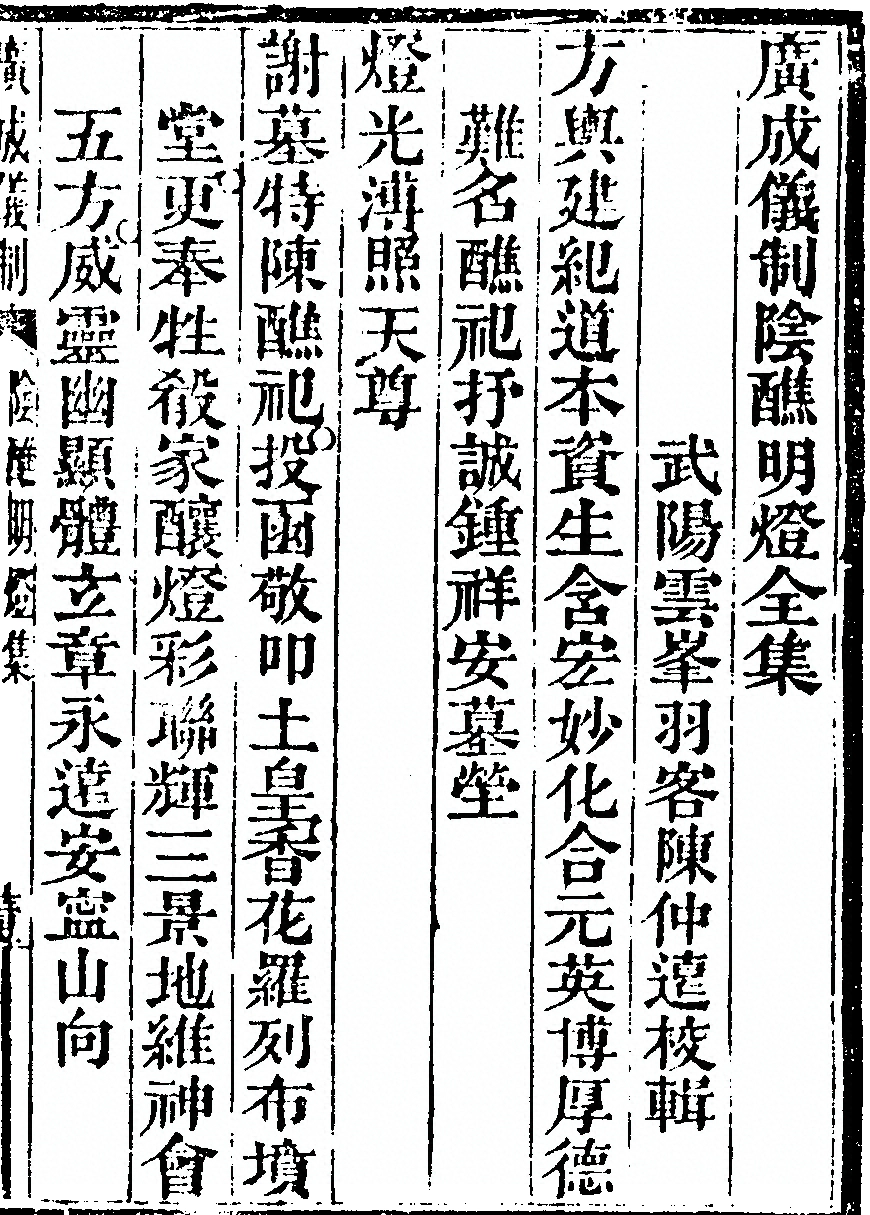 廣成儀制陰醮明燈全集
武陽雲峯羽客陳仲遠校輯
方輿建紀道本資生含宏妙化合元英博厚德
難名醮祀抒誠鍾祥安墓塋
燈光溥照天尊
謝墓特陳醮祀投函敬叩土皇香花羅列布墳
堂更奉牲殽家釀燈彩聯輝三景地維神會
五方威靈幽顯體立章永遠安寍山向
廣成儀制 陰醮明燈集